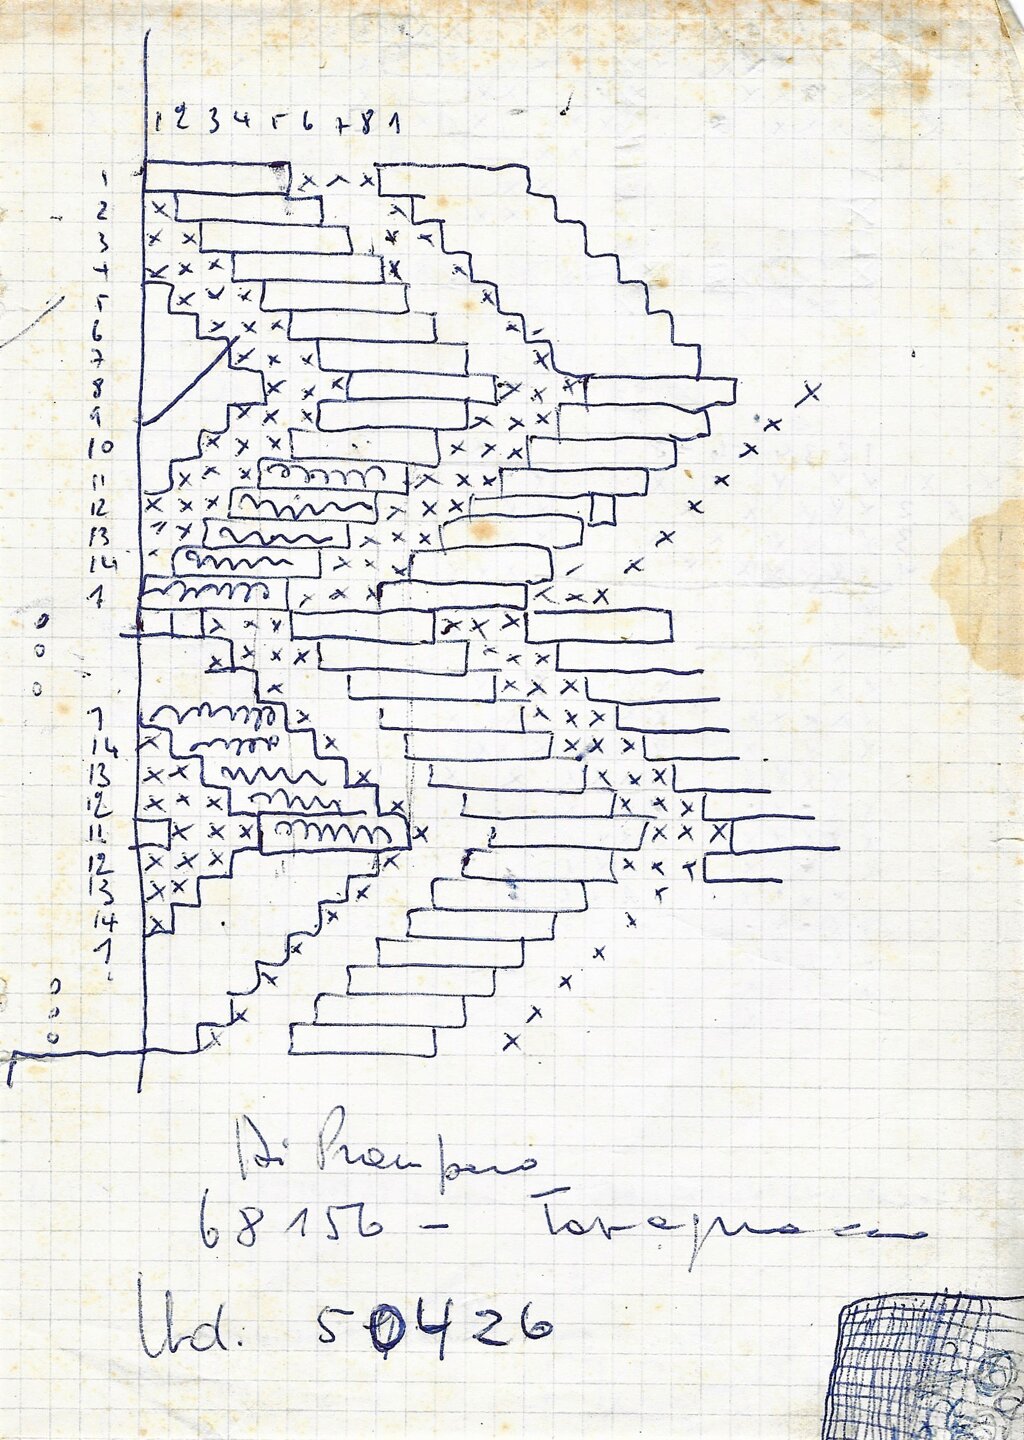 1 2 3 4 5 6 7 8 1
1 x x x
2 x x
3 x x x x
4 x x x x x
5 x x x x
6 x x x x
7 x x x x
8 x x x x x x x
9 x x x x x x x
10 x x x x x x x
11 x x x x x x x
12 x x x x x x x
13 x x x x x x
14 x x x x
1 x x x x x x
o x x x x x x
o x x x x x x x
o x x x x
1 x x x x
14 x x x x x
13 x x x x x x
12 x x x x x x x
11 x x x x x x x
12 x x x x x x x
13 x x x x
14 x x x
1 x x
x x
o x x
o x x
Di Prampero
68156 -
Ud. 50426